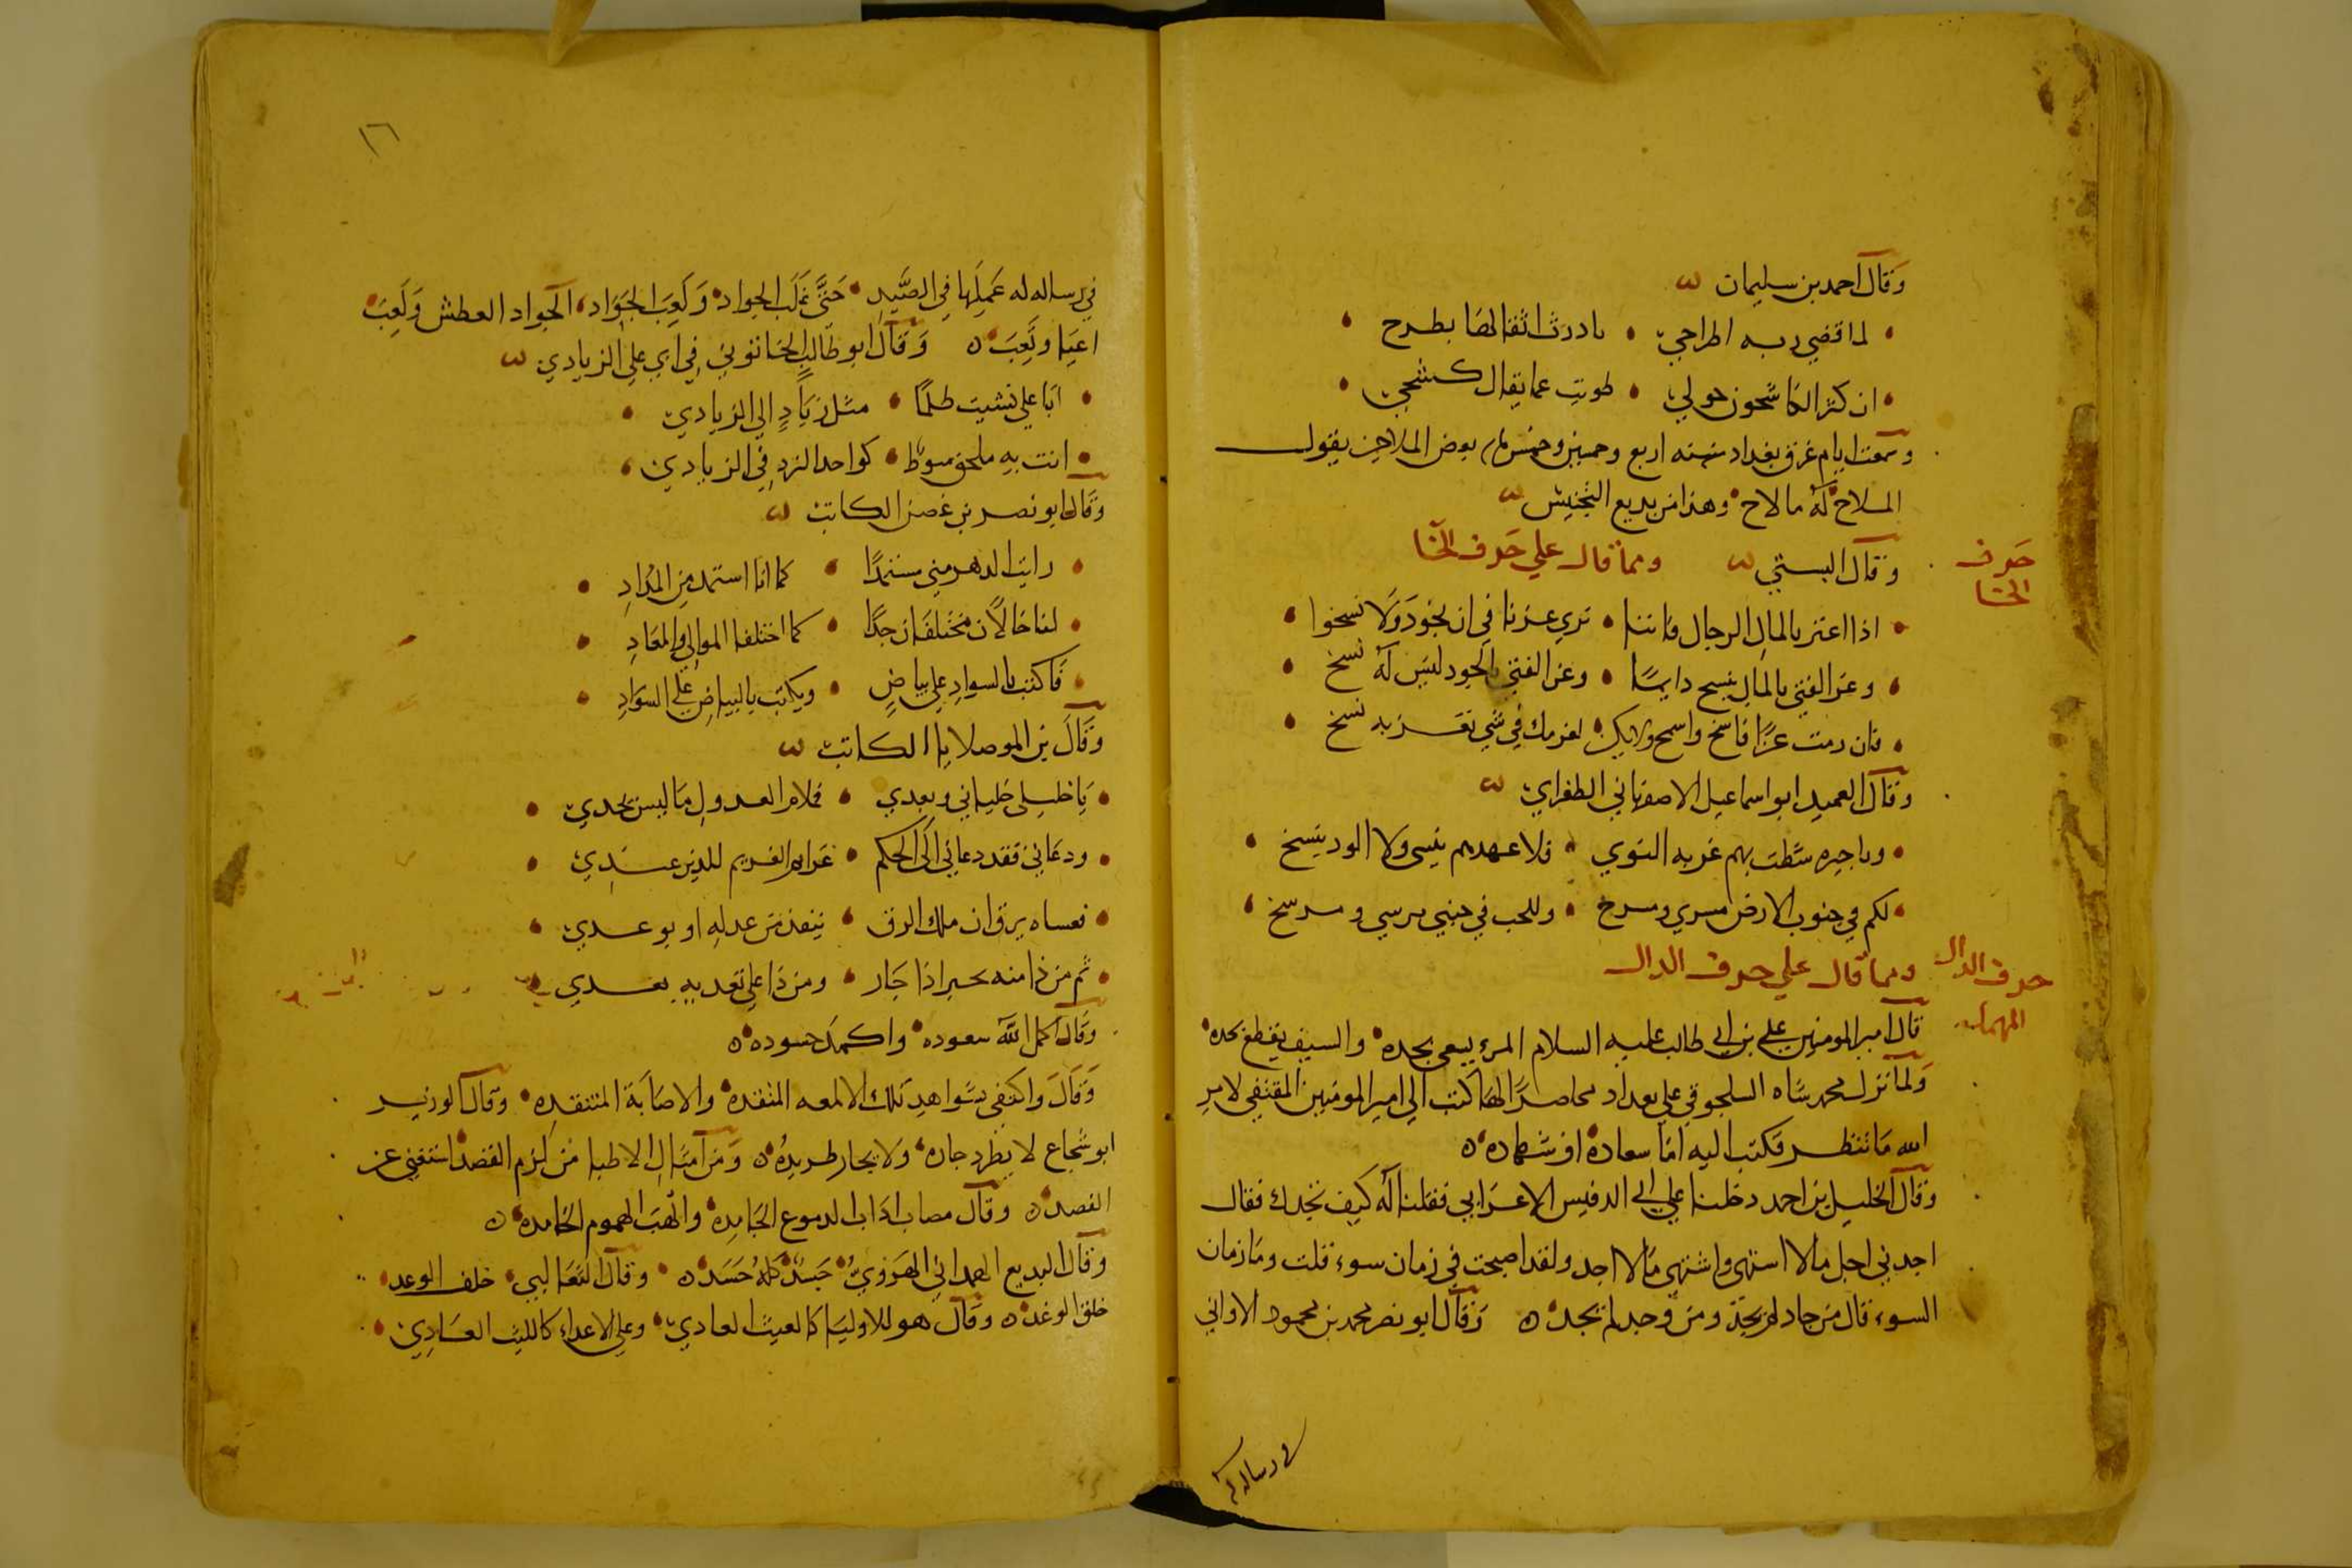 وقال احمد بن سليمان
لما قضي ربه اطراحي • بادرت اثقالها بطرح
ان كثر الكاشحون حولي • طويت عما يقال كشحي
وسمعت ايام غرق بغداد سنه اربع وخمسين وخمس بعض الملاحين يقول
الملاح له ما لاح • وهذا من بديع التجنيس
وقال البستي ومما قال علي حرف الخا
حرف
الخا
اذا اعتز بالمال الرجال فاننا • نري عزنا في ان نجود ولا نسخوا
وعز الفتي بالمال ينسخ دايما • وعز الفتي بالجود ليس له نسخ
فان رمت عزا فاسخ واسمح ولا يكن • لعزمك في شي تعز به نسخ
وقال العميد ابو اسماعيل الاصفهاني الطغراي
وبا جيره شطت بهم غربه النوي • فلا عهدهم ينسي ولا الود ينسخ
لكم في جنوب الارض مسري ومسرح • وللحب في جنبي مرسي ومرسخ
ومما قال علي حرف الدال
حرف الدال
المهمله
قال امير المومنين علي بن ابي طالب عليه السلام المرء يسعي بجده • والسيف يقطع بحده
ولما نزل محمد شاه السلجوقي علي بغداد محاصرا لها كتب الي امير المومنين المقتفي لامر
الله ما ننتظر فكتب اليه اما سعادة او شهاده
وقال الخليل بن احمد دخلنا علي ابي الدقيس الاعرابي فقلنا له كيف نجدك فقال
اجدني اجد ما لا اشتهي واشتهي ما لا اجد ولقد اصبحت في زمان سوء قلت وما زمان
السوء قال من جاد لم يجد ومن وجد لم يجد وقال ابو نصر محمد بن محمود الاواني
في رساله له
١٦
في رساله له عملها في الصيد • حتي غلب الجواد • ولعب الجواد، الجواد العطش ولعب
اعيا وتعب وقال ابو طالب الخاتوني في ابي علي الزيادي
ابا علي نشيت طلما • مثل زياد الي الزيادي
انت به ملحق منوط • كواحد الزد في الزيادي
وقال ابو نصر بن غصن الكاتب
رايت الدهر مني مستمدا • كما انا استمد من المداد
لنا حالان مختلفان جدا • كما اختلف الموالي والمعاد
فاكتب بالسواد علي بياض • ويكتب بالبياض علي السواد
وقال بن الموصلايا الكاتب
يا خليلي خلياني وبعدي • فلام العدول ما ليس يجدي
ودعاني فقد دعاني الي الحكم • غرام الغريم للدين عندي
فعساه يرق ان ملك الرق • بنقد من عدله او بوعدي
ثم من ذا منه يجير اذا جار • ومن ذا علي تعديه يعدي
وقال اكمل الله سعوده • واكمد حسوده
وقال واكتفي بشواهد تلك الالمعه المنقده • والاصابة المنتقده • وقال الوزير
ابو شجاع لا يطرد جاره • ولا يجار طريده ومن امثال الاطبا من لزم القصد استغني عن
الفصد وقال مصاب اذاب الدموع الجامده • والهب الهموم الخامده
وقال البديع الهمداني الهروي جسد كله حسد • وقال الثعالبي • خلف الوعد •
خلق الوغد وقال هو للاوليا كالغيث الغادي • وعلي الاعداء كالليث العادي